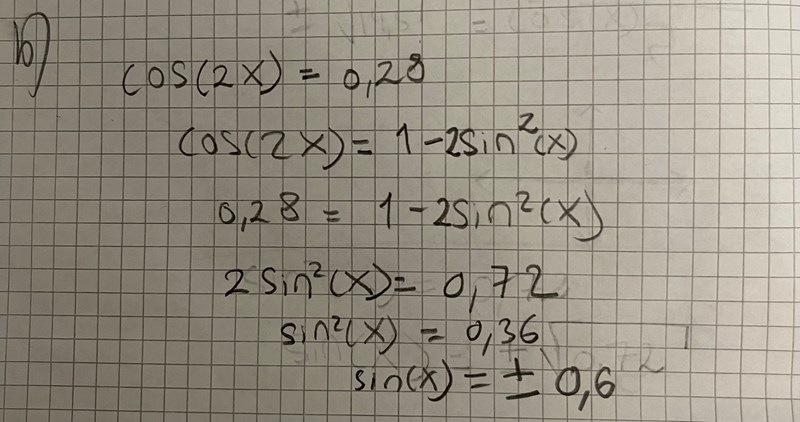 b)
cos(2x) = 0,28
cos(2x) = 1 - 2sin²(x)
0,28 = 1 - 2sin²(x)
2sin²(x) = 0,72
sin²(x) = 0,36
sin(x) = ± 0,6